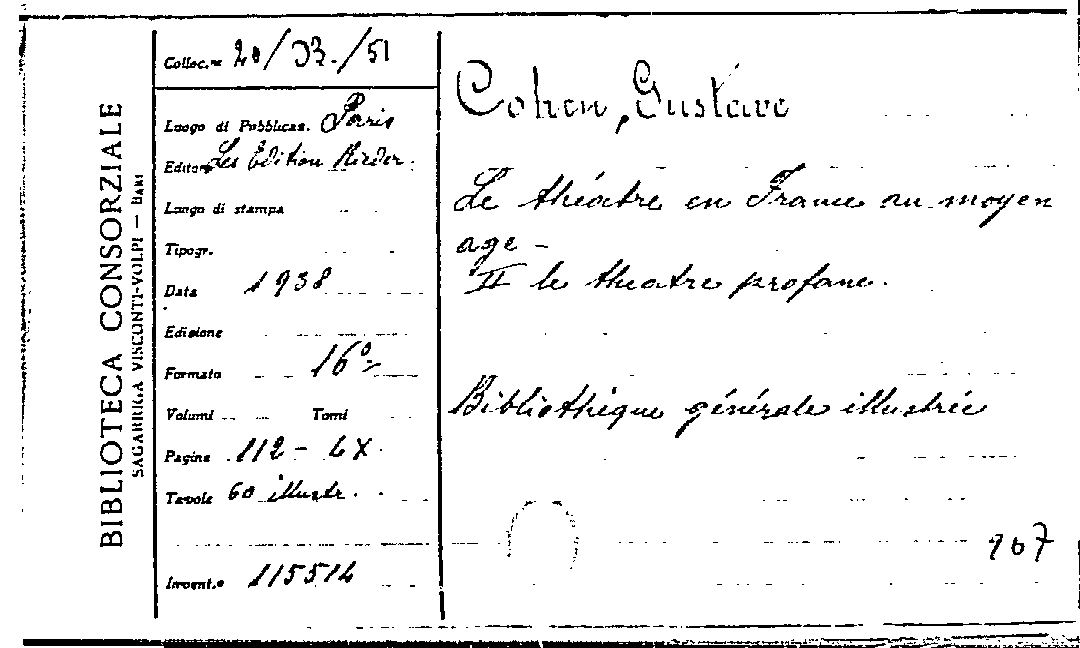 BIBLIOTECA CONSORZIALE
SAGARRIGA VISCONTI-VOLPI — BARI
Colloc.ne 20/D3./51
Luogo di Pubblicaz. Paris
Editore Les Edition Rieder.
Luogo di stampa
Tipogr.
Data 1938
Edizione
Formato 16°
Volumi Tomi
Pagine 112 - LX
Tavole 60 illustr.
Invent.e 115514
Cohen, Gustave
Le théatre en France au moyen
age -
II le theatre profane.
Bibliothèque générale illustrée
907